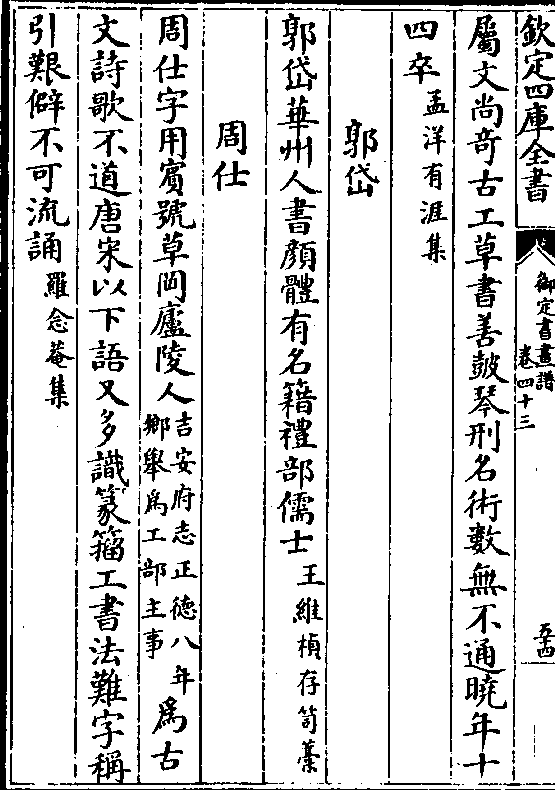 欽定四庫全書
御定書畫譜
卷四十三
五十四
屬文尚竒古工草書善皷琴刑名術數無不通曉年十
四卒孟洋有涯集
郭岱
郭岱華州人書顔體有名籍禮部儒士王維楨存笥藁
周仕
周仕字用賓號草岡廬陵人吉安府志正德八年鄉舉為工部主事為古
文詩歌不道唐宋以下語又多識篆籀工書法難字稱
引艱僻不可流誦羅念菴集